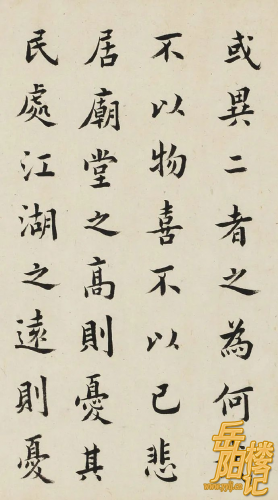 或異二者之為何
不以物喜不以己悲
居廟堂之高則憂其
民處江湖之遠則憂
岳阳楼记